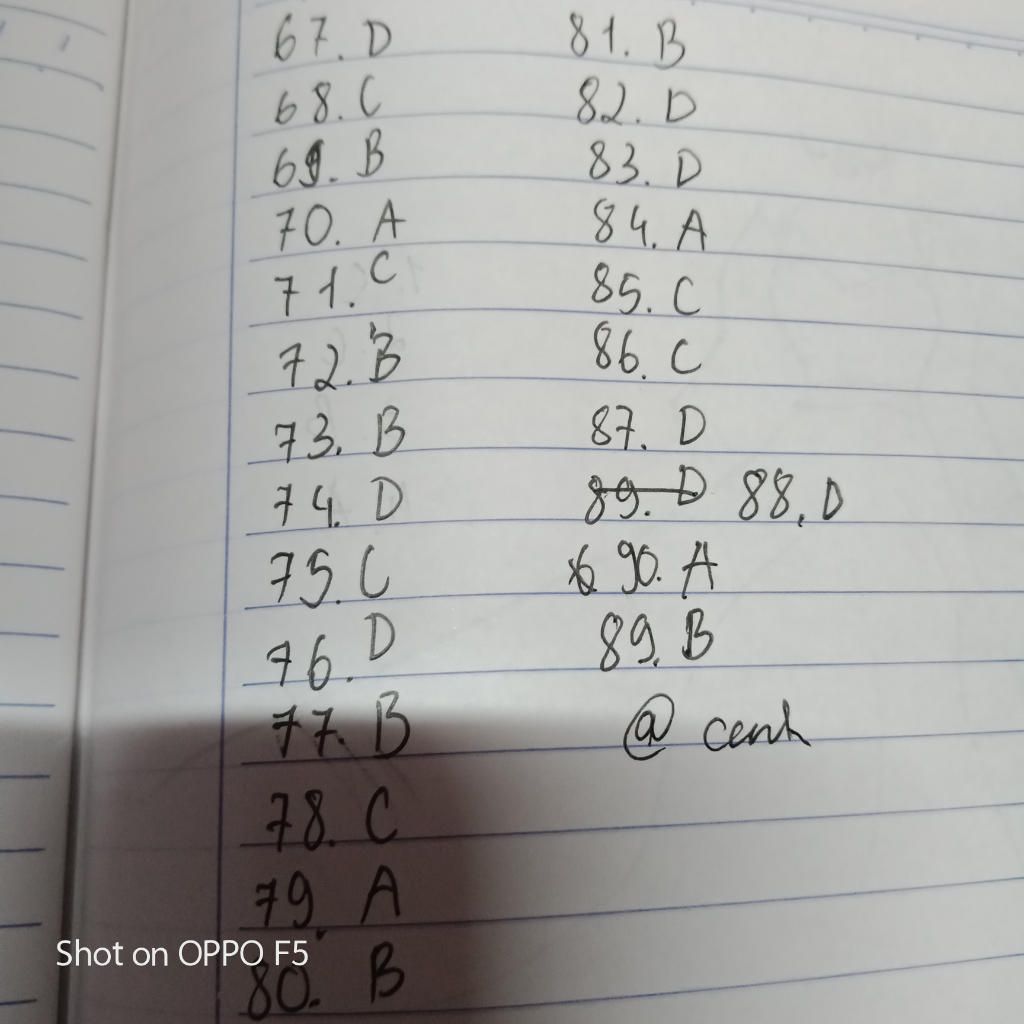 67. D
68. C
69. B
70. A
71. C
72. B
73. B
74. D
75. C
76. D
77. B
78. C
79. A
80. B
81. B
82. D
83. D
84. A
85. C
86. C
87. D
89. D 88. D
90. A
89. B
@ cenh
Shot on OPPO F5